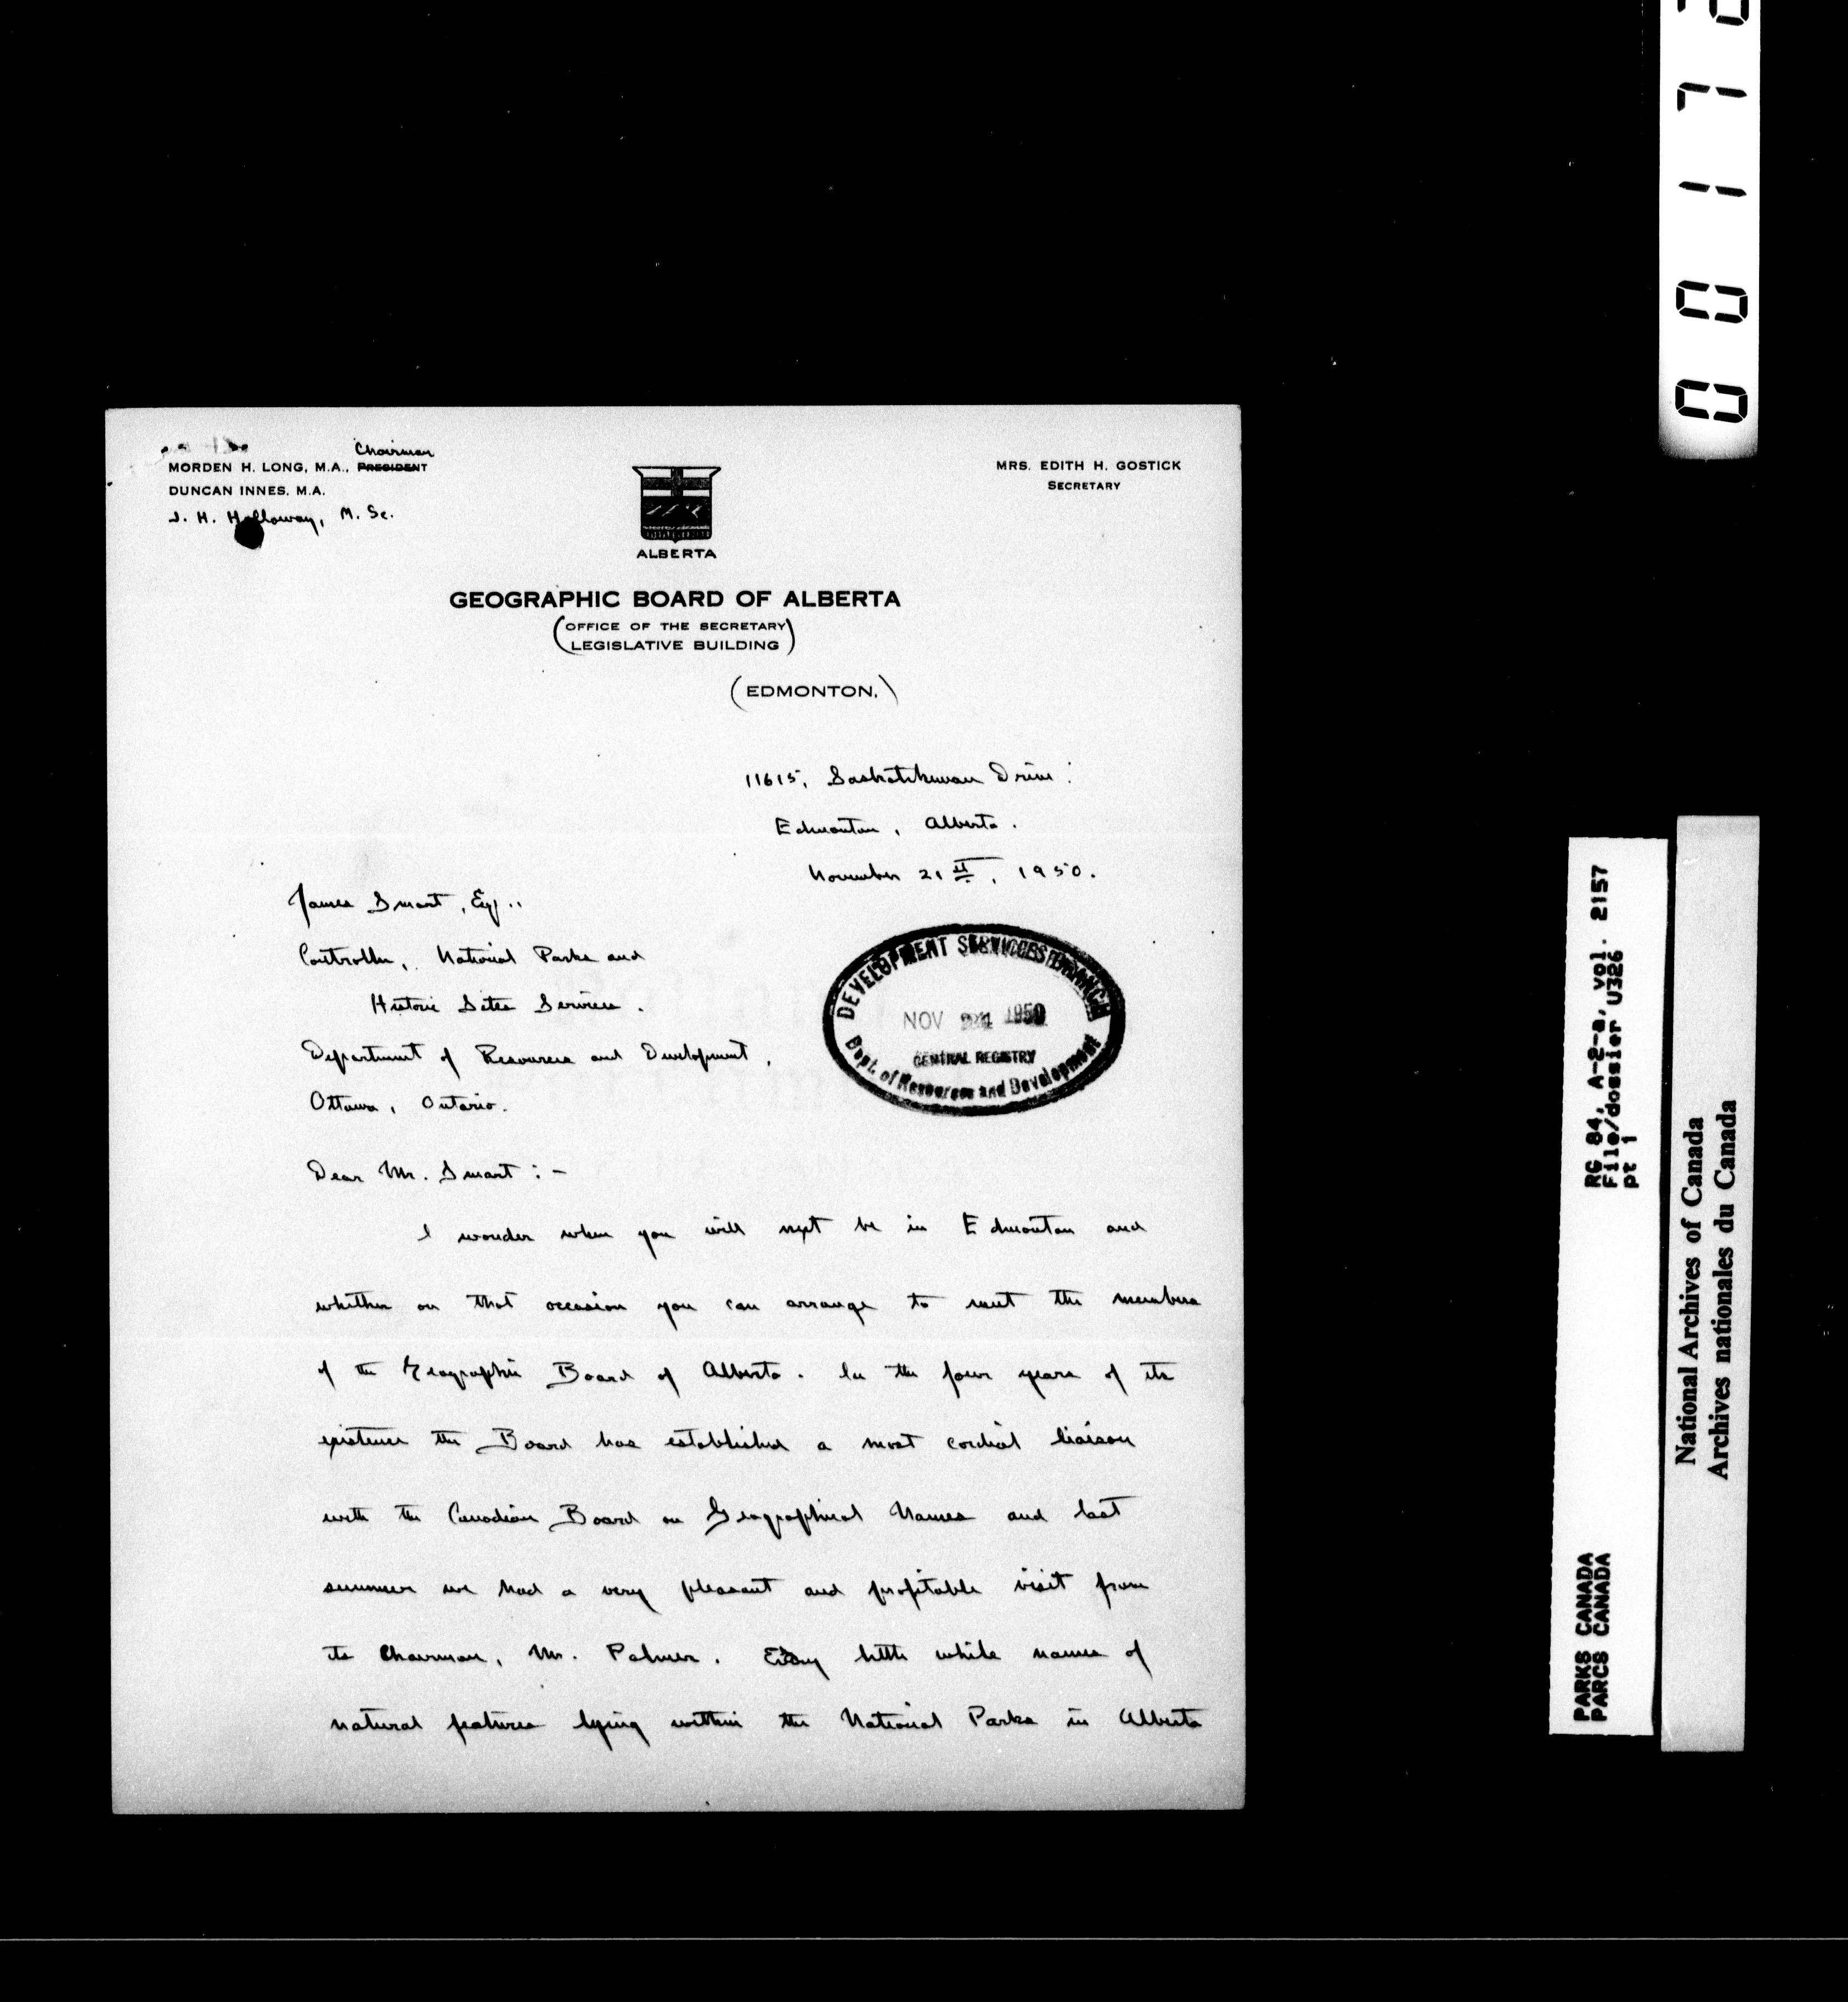 Chairman
MORDEN H. LONG, M.A., PRESIDENT
DUNCAN INNES, M.A.
J. H. Holloway, M. Sc.
MRS. EDITH H. GOSTICK
SECRETARY
ALBERTA
GEOGRAPHIC BOARD OF ALBERTA
(OFFICE OF THE SECRETARY
LEGISLATIVE BUILDING)
(EDMONTON,)
11615, Saskatchewan Drive:
Edmonton, Alberta.
November 21st, 1950.
James Smart, Esq.,
Controller, National Parks and
Historic Sites Services.
Department of Resources and Development,
Ottawa, Ontario.
DEVELOPMENT SERVICES BRANCH
NOV 1950
CENTRAL REGISTRY
Dept. of Resources and Development
Dear Mr. Smart:-
I wonder when you will next be in Edmonton and
whether on that occasion you can arrange to meet the members
of the Geographic Board of Alberta. In the four years of its
existence the Board has established a most cordial liaison
with the Canadian Board on Geographical Names and last
summer we had a very pleasant and profitable visit from
its Chairman, Mr. Palmer. Every little while names of
natural features lying within the National Parks in Alberta
0 0 1 7
RG 84, A-2-a, vol. 2157
File/dossier U326
pt 1
PARKS CANADA
PARCS CANADA
National Archives of Canada
Archives nationales du Canada